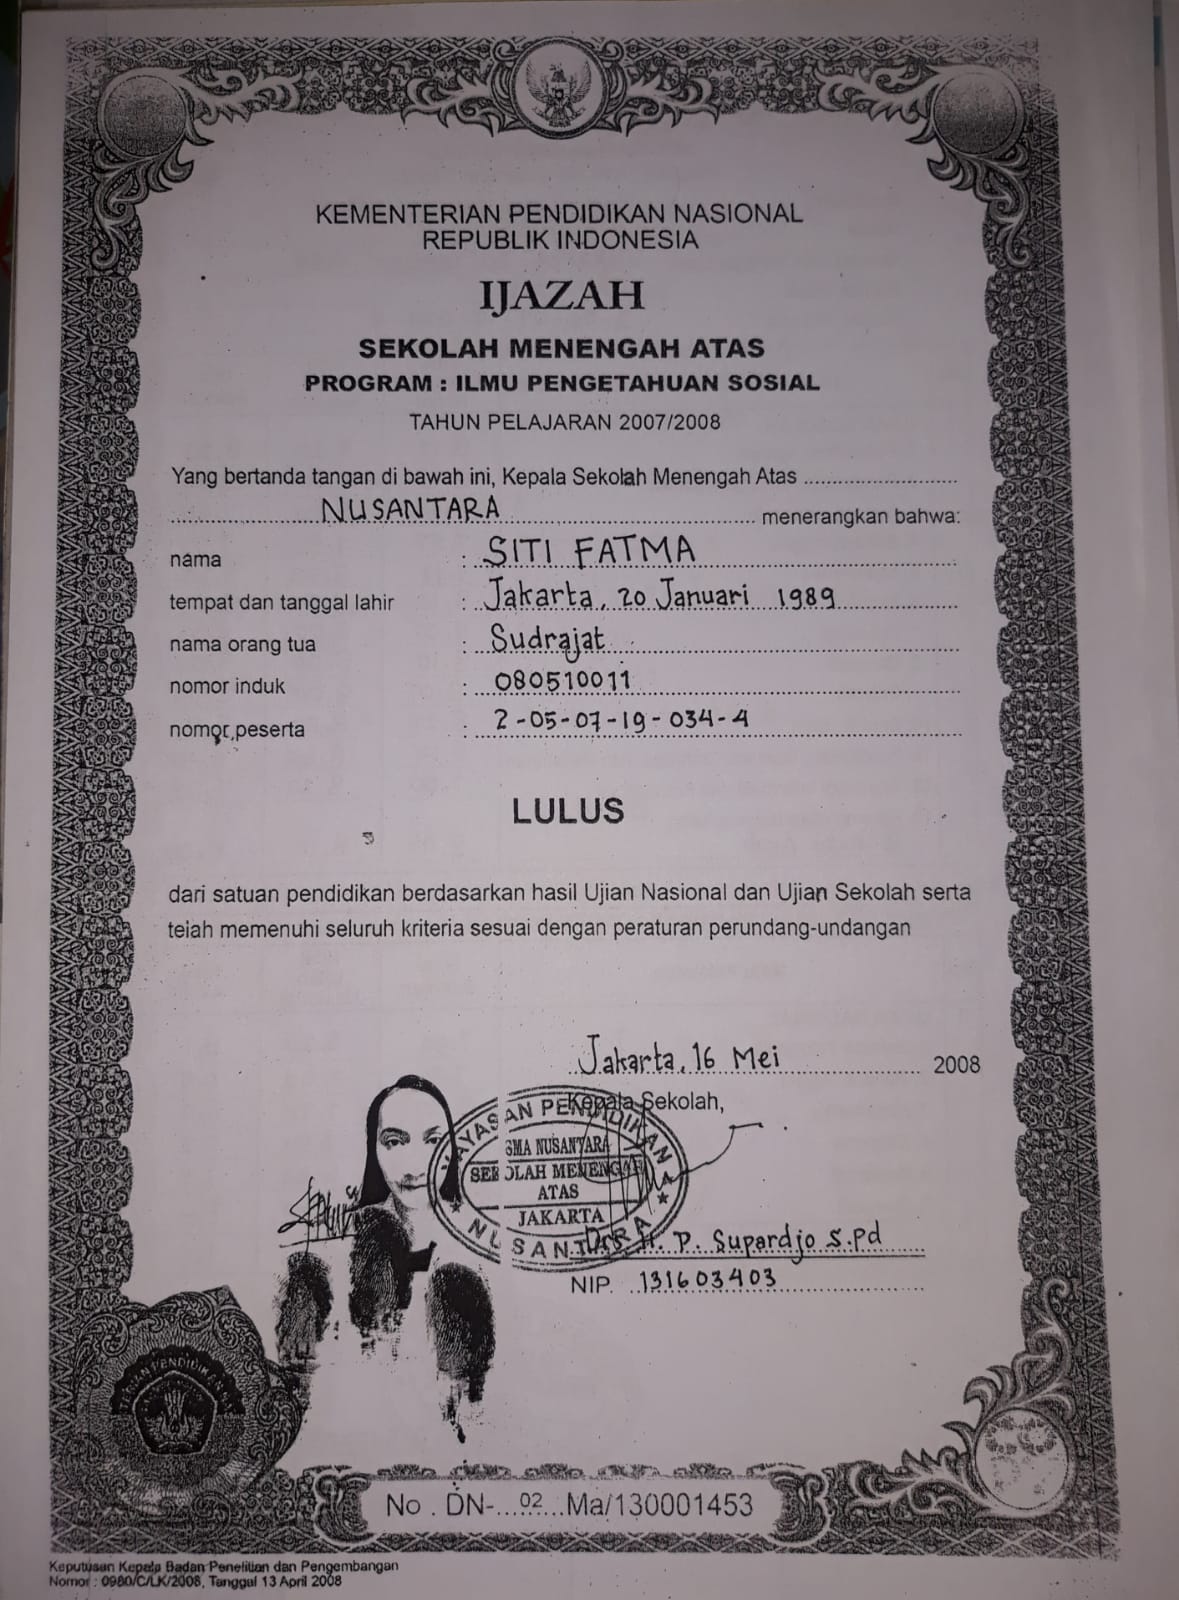 KEMENTERIAN PENDIDIKAN NASIONAL
REPUBLIK INDONESIA
IJAZAH
SEKOLAH MENENGAH ATAS
PROGRAM : ILMU PENGETAHUAN SOSIAL
TAHUN PELAJARAN 2007/2008
Yang bertanda tangan di bawah ini, Kepala Sekolah Menengah Atas
NUSANTARA menerangkan bahwa:
nama : SITI FATMA
tempat dan tanggal lahir : Jakarta, 20 Januari 1989
nama orang tua : Sudrajat
nomor induk : 080510011
nomor peserta : 2-05-07-19-034-4
LULUS
dari satuan pendidikan berdasarkan hasil Ujian Nasional dan Ujian Sekolah serta
teiah memenuhi seluruh kriteria sesuai dengan peraturan perundang-undangan
Jakarta, 16 Mei 2008
Kepala Sekolah,
YAYASAN PENDIDIKAN
SMA NUSANTARA
SEKOLAH MENENGAH
ATAS
JAKARTA
NUSANTARA
Drs. H. P. Supardjo S.Pd
NIP. 131603403
No . DN- 02 Ma/130001453
Keputusan Kepala Badan Penelitian dan Pengembangan
Nomor : 0980/C/LK/2008, Tanggal 13 April 2008